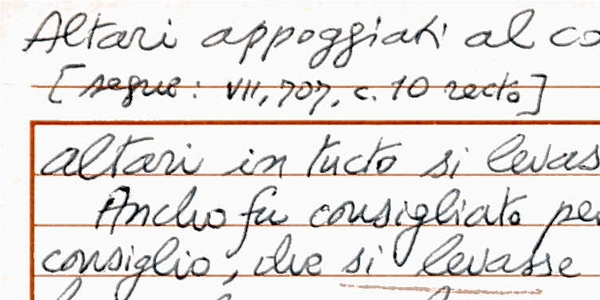 Altari appoggiati al co
[segue: VII, 707, c. 10 recto]
altari in tucto si levas
Ancho fu consigliato per
consiglio, che si levasse